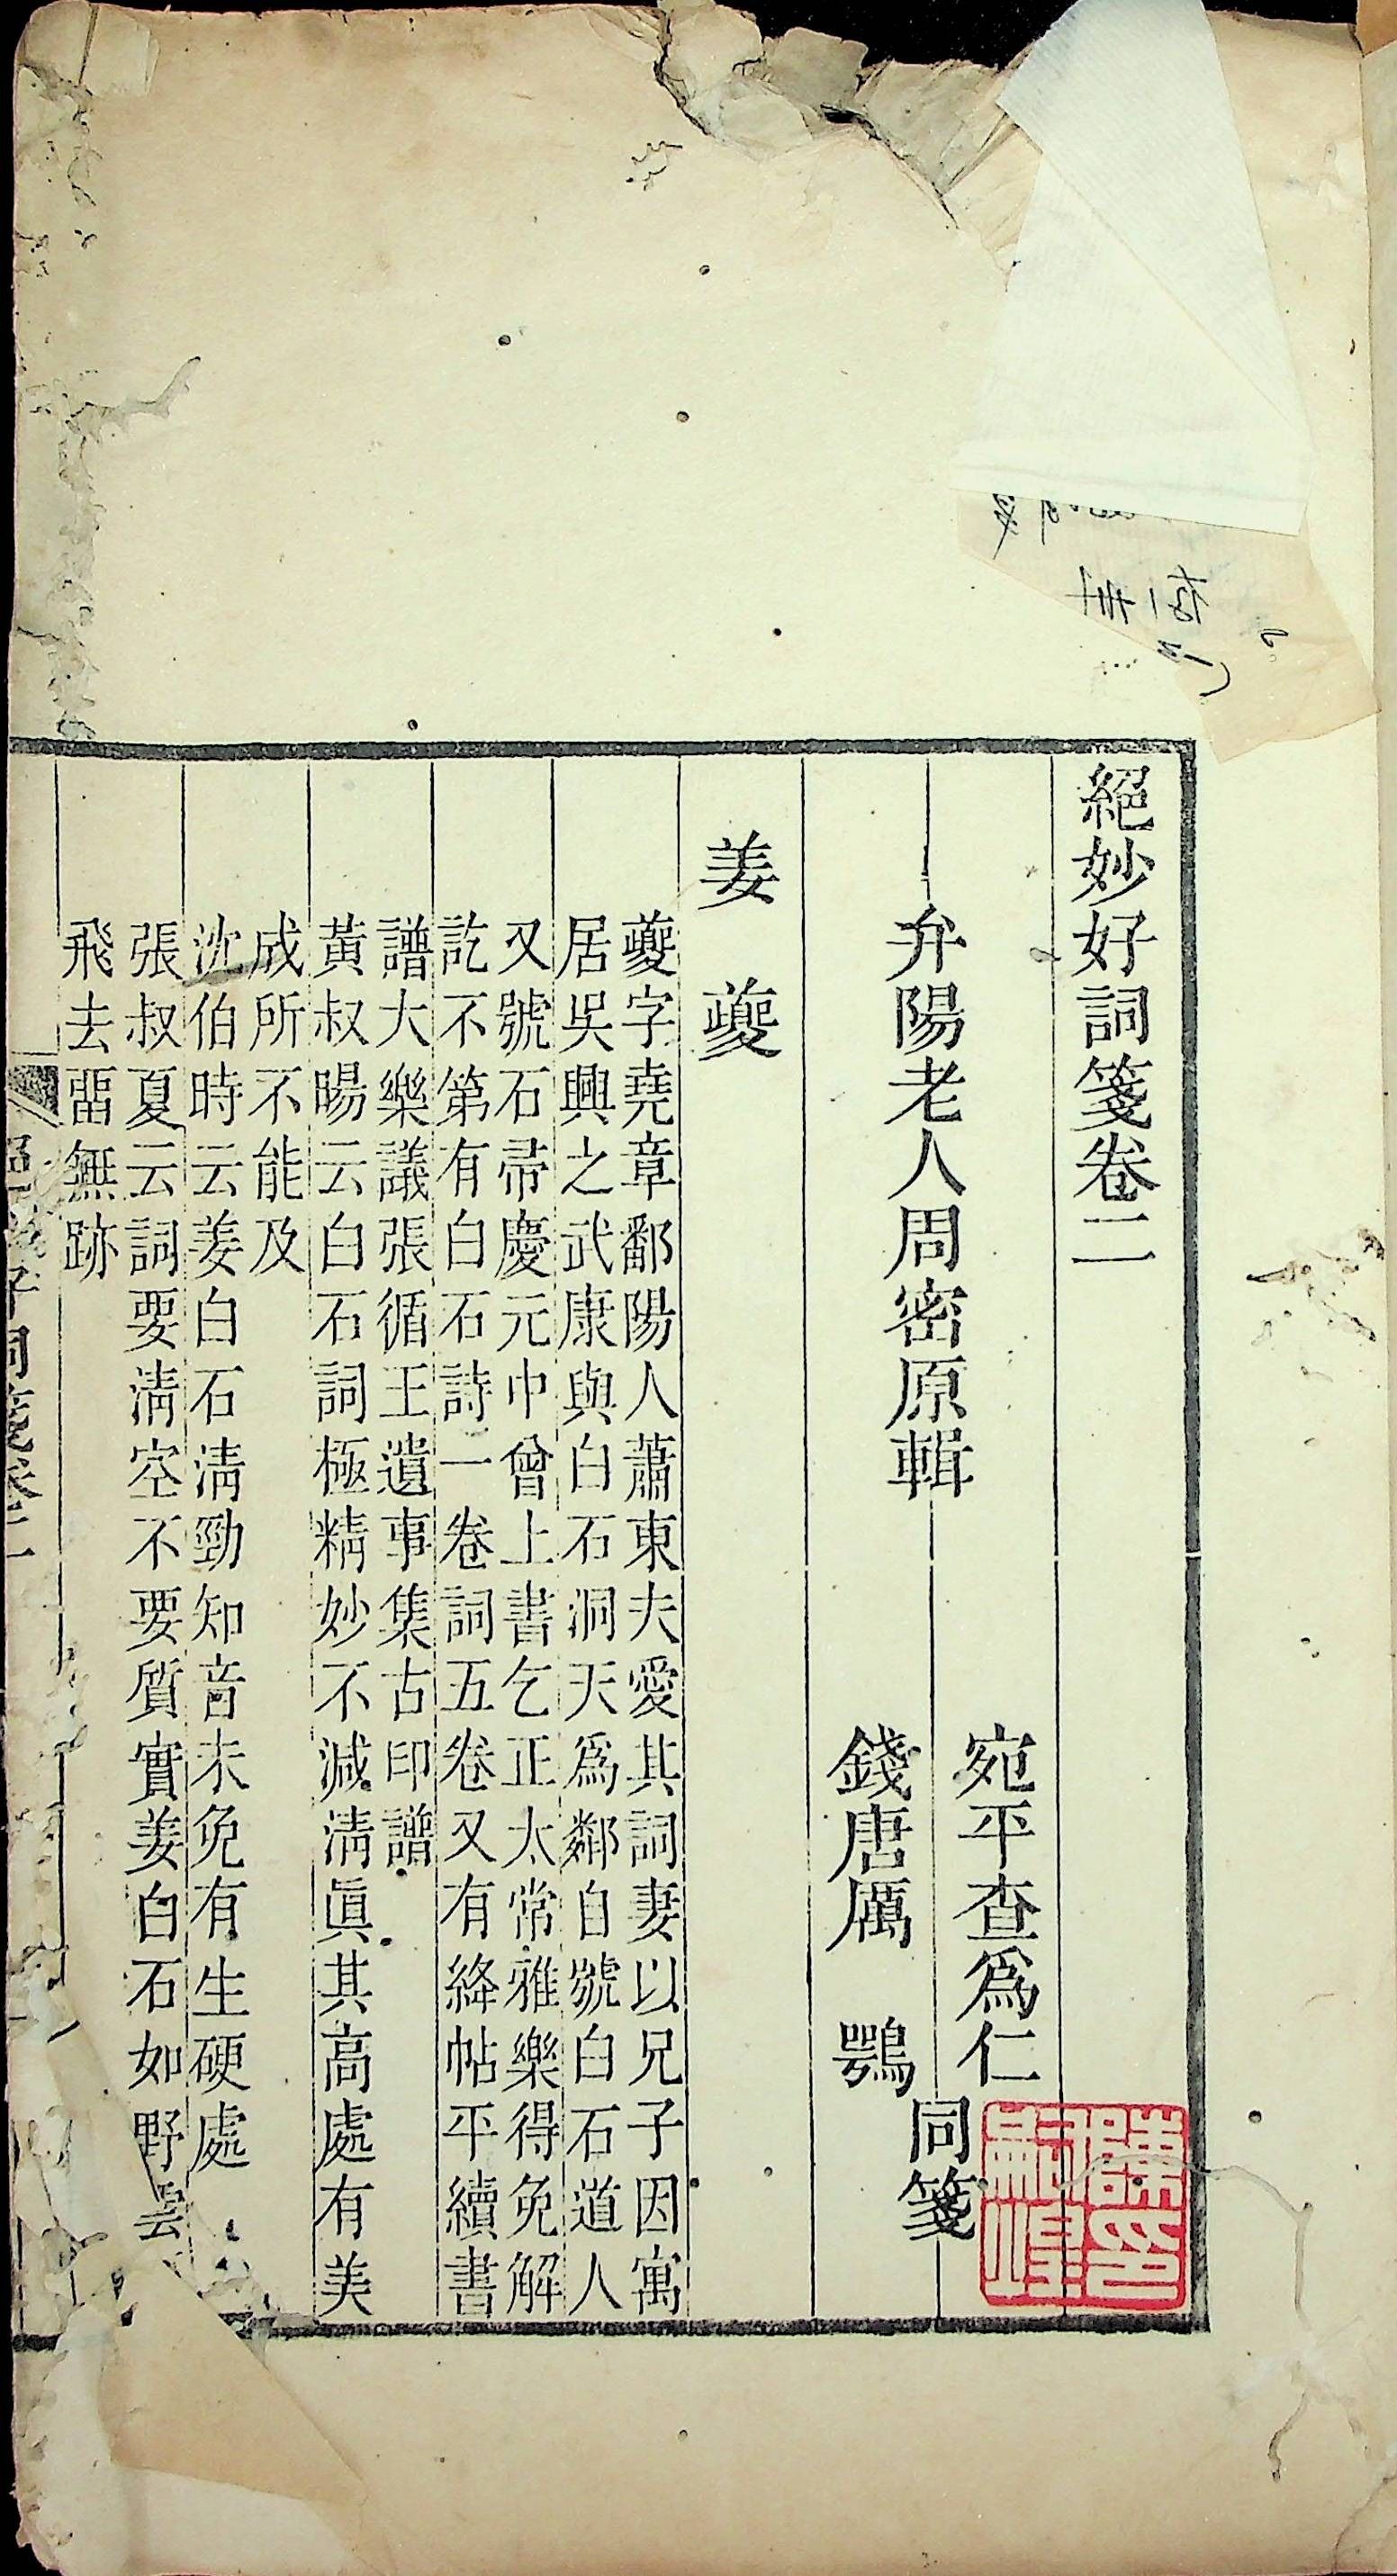 絕妙好詞箋卷二
弁陽老人周密原輯
宛平查爲仁
錢唐厲鶚
同箋
姜夔
夔字堯章鄱陽人蕭東夫愛其詞妻以兄子因寓
居吳興之武康與白石洞天爲鄰自號白石道人
又號石帚慶元中曾上書乞正太常雅樂得免解
訖不第有白石詩一卷詞五卷又有絳帖平續書
譜大樂議張循王遺事集古印譜
黃叔暘云白石詞極精妙不減淸眞其高處有美
成所不能及
沈伯時云姜白石淸勁知音未免有生硬處
張叔夏云詞要淸空不要質實姜白石如野雲
飛去畱無跡
詞箋卷二